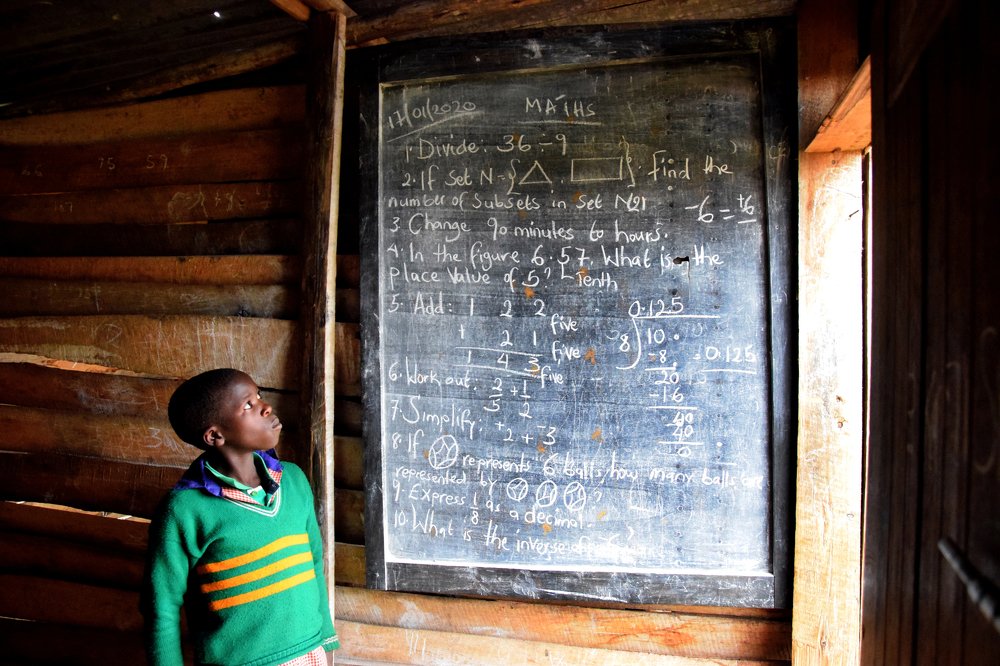 17/01/2020 MATHS
1. Divide: 36 ÷ 9
2. If Set N = { , } find the
number of Subsets in Set N
-6 = +6
3 Change 90 minutes to hours.
4. In the figure 6.57, What is the
place value of 5? - Tenth
5. Add: 1 2 2 five
+ 2 1 five
1 4 3 five
0.125
8 10
-8
20
-16
40
40
0
= 0.125
6. Work out: 2/5 + 1/2
7. Simplify: +2 + -3
8 If represents 6 balls, how many balls are
represented by ?
9. Express 1/8 as a decimal.
10. What is the inverse of